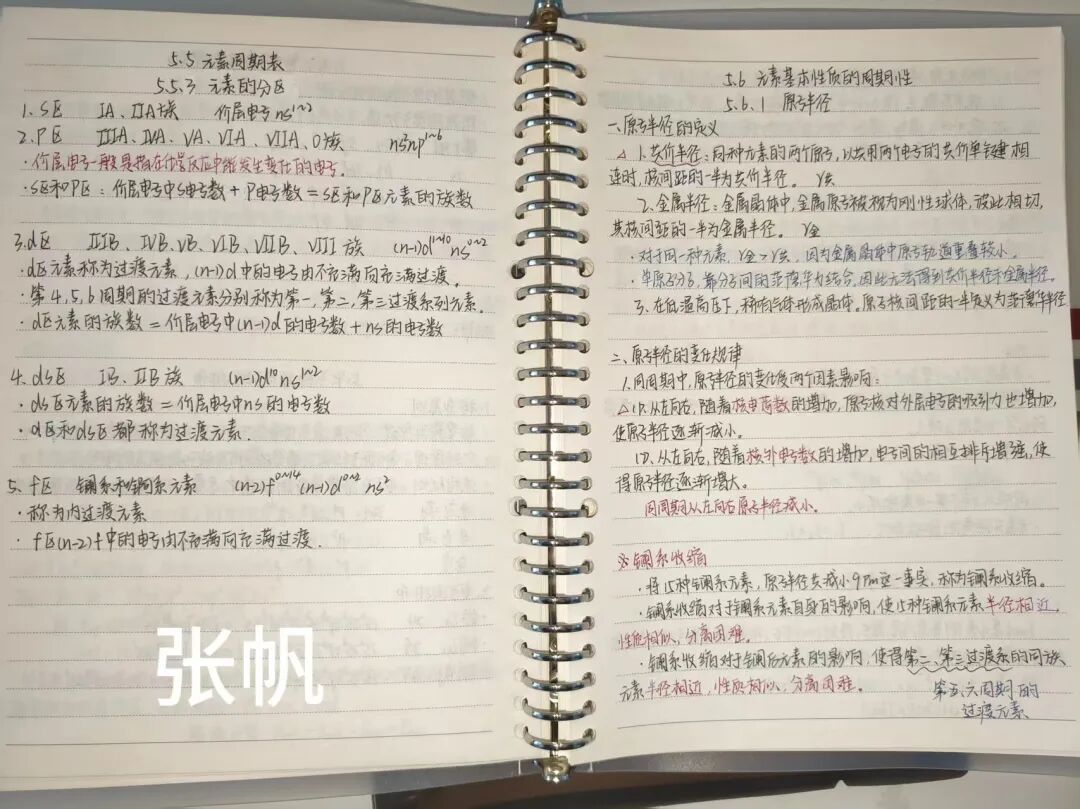 5.5 元素周期表
5.5.3 元素的分区
1. S区 IA、IIA族 价层电子 ns¹~²
2. P区 IIIA、IVA、VA、VIA、VIIA、0族 ns²np¹~⁶
·价层电子一般是指在化学反应中能发生变化的电子.
·S区和P区:价层电子中S电子数+P电子数=S区和P区元素的族数
3. d区 IIIB、IVB、VB、VIB、VIIB、VIII族 (n-1)d¹~¹⁰ ns⁰~²
·d区元素称为过渡元素,(n-1)d中的电子由不充满向充满过渡。
·第4,5,6周期的过渡元素分别称为第一,第二,第三过渡系列元素.
·d区元素的族数=价层电子中(n-1)d的电子数+ns的电子数
4. ds区 IB、IIB族 (n-1)d¹⁰ns¹~²
·ds区元素的族数=价层电子中ns的电子数
·d区和ds区都称为过渡元素.
5. f区 镧系和锕系元素 (n-2)f⁰~¹⁴(n-1)d⁰~² ns²
·称为内过渡元素
·f区(n-2)f中的电子由不充满向充满过渡.
张帆
5.6 元素基本性质的周期性
5.6.1 原子半径
一、原子半径的定义
△ 1.共价半径:同种元素的两个原子,以共用两个电子的共价单键相
连时,核间距的一半为共价半径。 r共
2.金属半径:金属晶体中,金属原子被视为刚性球体,彼此相切,
其核间距的一半为金属半径。 r金
·对于同一种元素,r金>r共,因为金属晶体中原子轨道重叠较小。
·单原子分子,靠分子间的范德华力结合,因此无法得到共价半径和金属半径。
3.在低温高压下,稀有气体形成晶体。原子核间距的一半定义为范德华半径
二、原子半径的变化规律
1.同周期中,原子半径的变化受两个因素影响:
△ 1).从左向右,随着核电荷数的增加,原子核对外层电子的吸引力也增加,
使原子半径逐渐减小。
1).从左向右,随着核外电子数的增加,电子间的相互排斥增强,使
得原子半径逐渐增大。
同周期从左向右原子半径减小。
※镧系收缩
·将15种镧系元素,原子半径共减小9pm这一事实,称为镧系收缩。
·镧系收缩对于镧系元素自身的影响,使15种镧系元素半径相近,
性质相似,分离困难。
·镧系收缩对于镧后元素的影响,使得第二、第三过渡系的同族
元素半径相近,性质相似,分离困难。
第五、六周期的
过渡元素